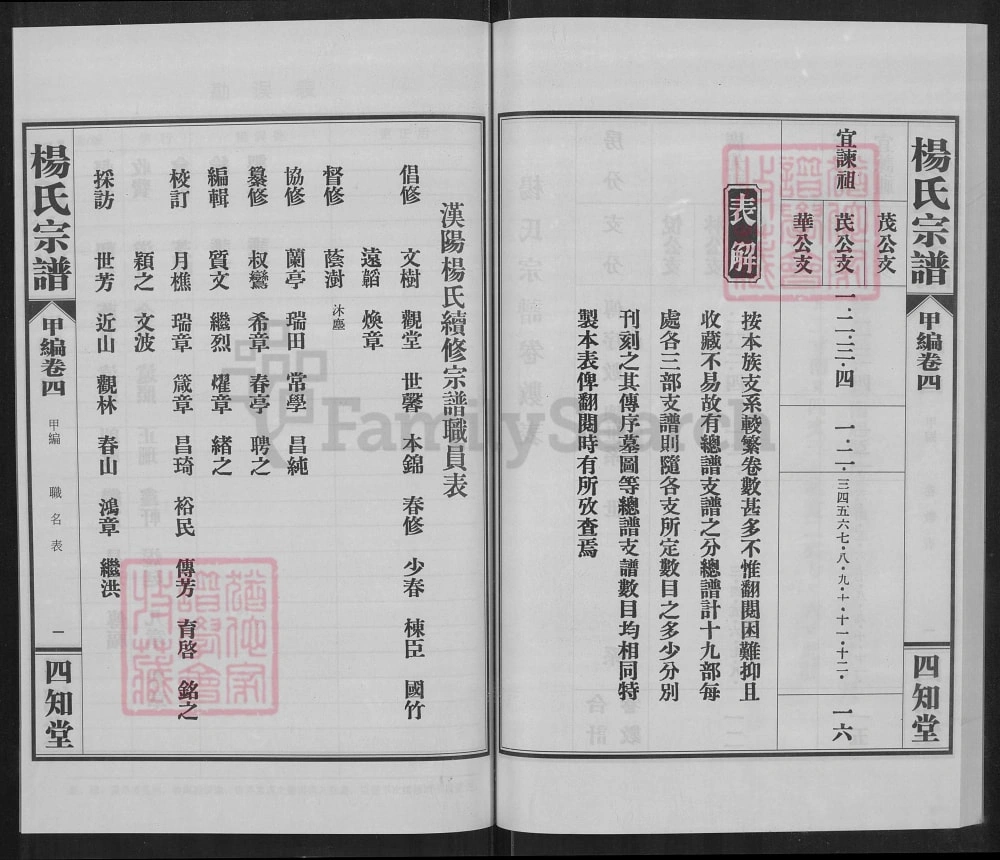 楊氏宗譜 甲編卷四 四知堂
茂公支
宜諫祖 芪公支 一・二・三・四 一・二・三四五六七・八・九・十・十一・十二・ 一六
華公支
表解
按本族支系較繁卷數甚多不惟翻閱困難抑且
收藏不易故有總譜支譜之分總譜計十九部每
處各三部支譜則隨各支所定數目之多少分別
刊刻之其傳序墓圖等總譜支譜數目均相同特
製本表俾翻閱時有所攷查焉
漢陽楊氏續修宗譜職員表
倡修 文樹 觀堂 世馨 本錦 春修 少春 棟臣 國竹
遠韜 煥章
督修 蔭澍 沐塵
協修 蘭亭 瑞田 常學 昌純
纂修 叔鸞 希章 春亭 聘之
編輯 質文 繼烈 燿章 緒之
校訂 月樵 瑞章 箴章 昌琦 裕民 傳芳 育啓 銘之
穎之 文波
採訪 世芳 近山 觀林 春山 鴻章 繼洪
楊氏宗譜 甲編卷四 甲編 職名表 一 四知堂
FamilySearch